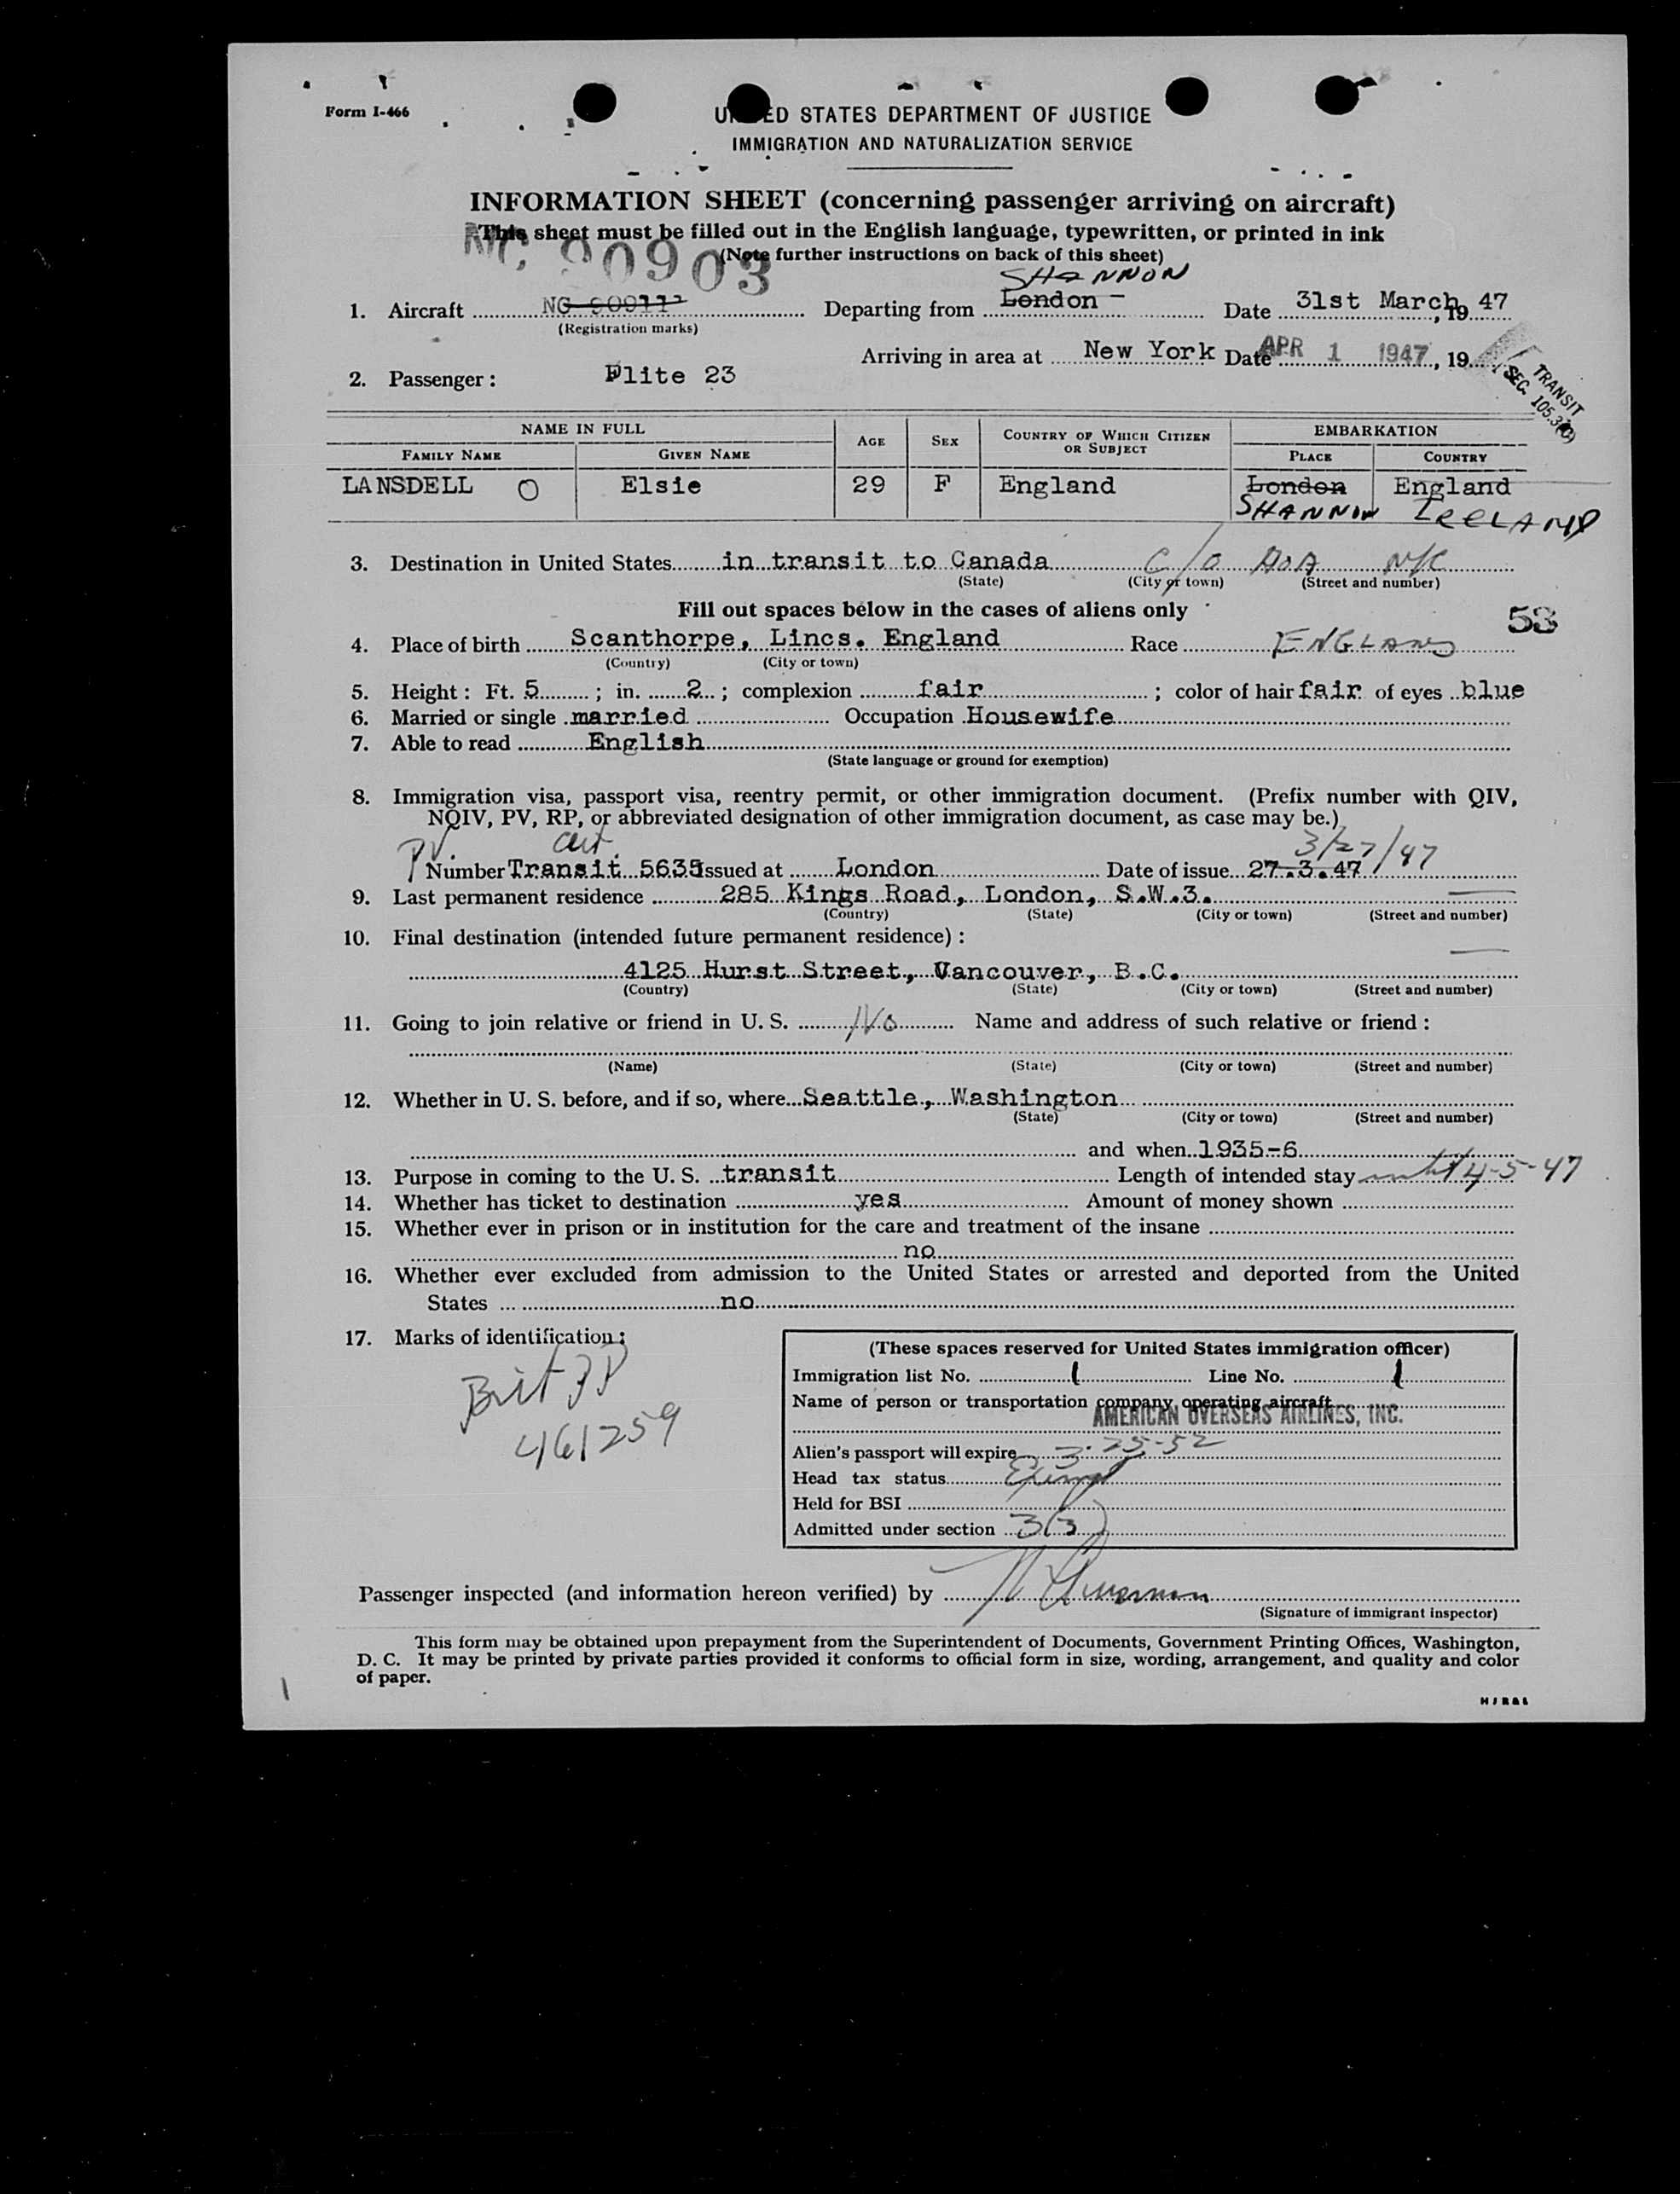 Form I-466
UNITED STATES DEPARTMENT OF JUSTICE
IMMIGRATION AND NATURALIZATION SERVICE
INFORMATION SHEET (concerning passenger arriving on aircraft)
This sheet must be filled out in the English language, typewritten, or printed in ink
(Note further instructions on back of this sheet)
NC 90903
SHANNON
1. Aircraft NC 90911 Departing from London - Date 31st March, 19 47
(Registration marks)
Arriving in area at New York Date APR 1 1947, 19
TRANSIT
SEC. 105.3(C)
2. Passenger: Flite 23
NAME IN FULL AGE SEX COUNTRY OF WHICH CITIZEN OR SUBJECT EMBARKATION
FAMILY NAME GIVEN NAME PLACE COUNTRY
LANSDELL O Elsie 29 F England London England
SHANNON IRELAND
3. Destination in United States in transit to Canada C/O AOA NYC
(State) (City or town) (Street and number)
Fill out spaces below in the cases of aliens only
53
4. Place of birth Scanthorpe, Lincs. England Race ENGLAND
(Country) (City or town)
5. Height: Ft. 5 ; in. 2 ; complexion fair ; color of hair fair of eyes blue
6. Married or single married Occupation Housewife
7. Able to read English
(State language or ground for exemption)
8. Immigration visa, passport visa, reentry permit, or other immigration document. (Prefix number with QIV,
NQIV, PV, RP, or abbreviated designation of other immigration document, as case may be.)
PV. Cert. 3/27/47
Number Transit 5635 Issued at London Date of issue 27.3.47
9. Last permanent residence 285 Kings Road, London, S.W.3.
(Country) (State) (City or town) (Street and number)
10. Final destination (intended future permanent residence):
4125 Hurst Street, Vancouver, B.C.
(Country) (State) (City or town) (Street and number)
11. Going to join relative or friend in U. S. No Name and address of such relative or friend:
(Name) (State) (City or town) (Street and number)
12. Whether in U. S. before, and if so, where Seattle, Washington
(State) (City or town) (Street and number)
and when 1935-6
13. Purpose in coming to the U. S. transit Length of intended stay until 4-5-47
14. Whether has ticket to destination yes Amount of money shown
15. Whether ever in prison or in institution for the care and treatment of the insane
no
16. Whether ever excluded from admission to the United States or arrested and deported from the United
States no
17. Marks of identification:
Brit PP
461259
(These spaces reserved for United States immigration officer)
Immigration list No. 1 Line No. 1
Name of person or transportation company operating aircraft
AMERICAN OVERSEAS AIRLINES, INC.
Alien's passport will expire 3-25-52
Head tax status Exempt
Held for BSI
Admitted under section 3(3)
Passenger inspected (and information hereon verified) by
(Signature of immigrant inspector)
This form may be obtained upon prepayment from the Superintendent of Documents, Government Printing Offices, Washington,
D. C. It may be printed by private parties provided it conforms to official form in size, wording, arrangement, and quality and color
of paper.